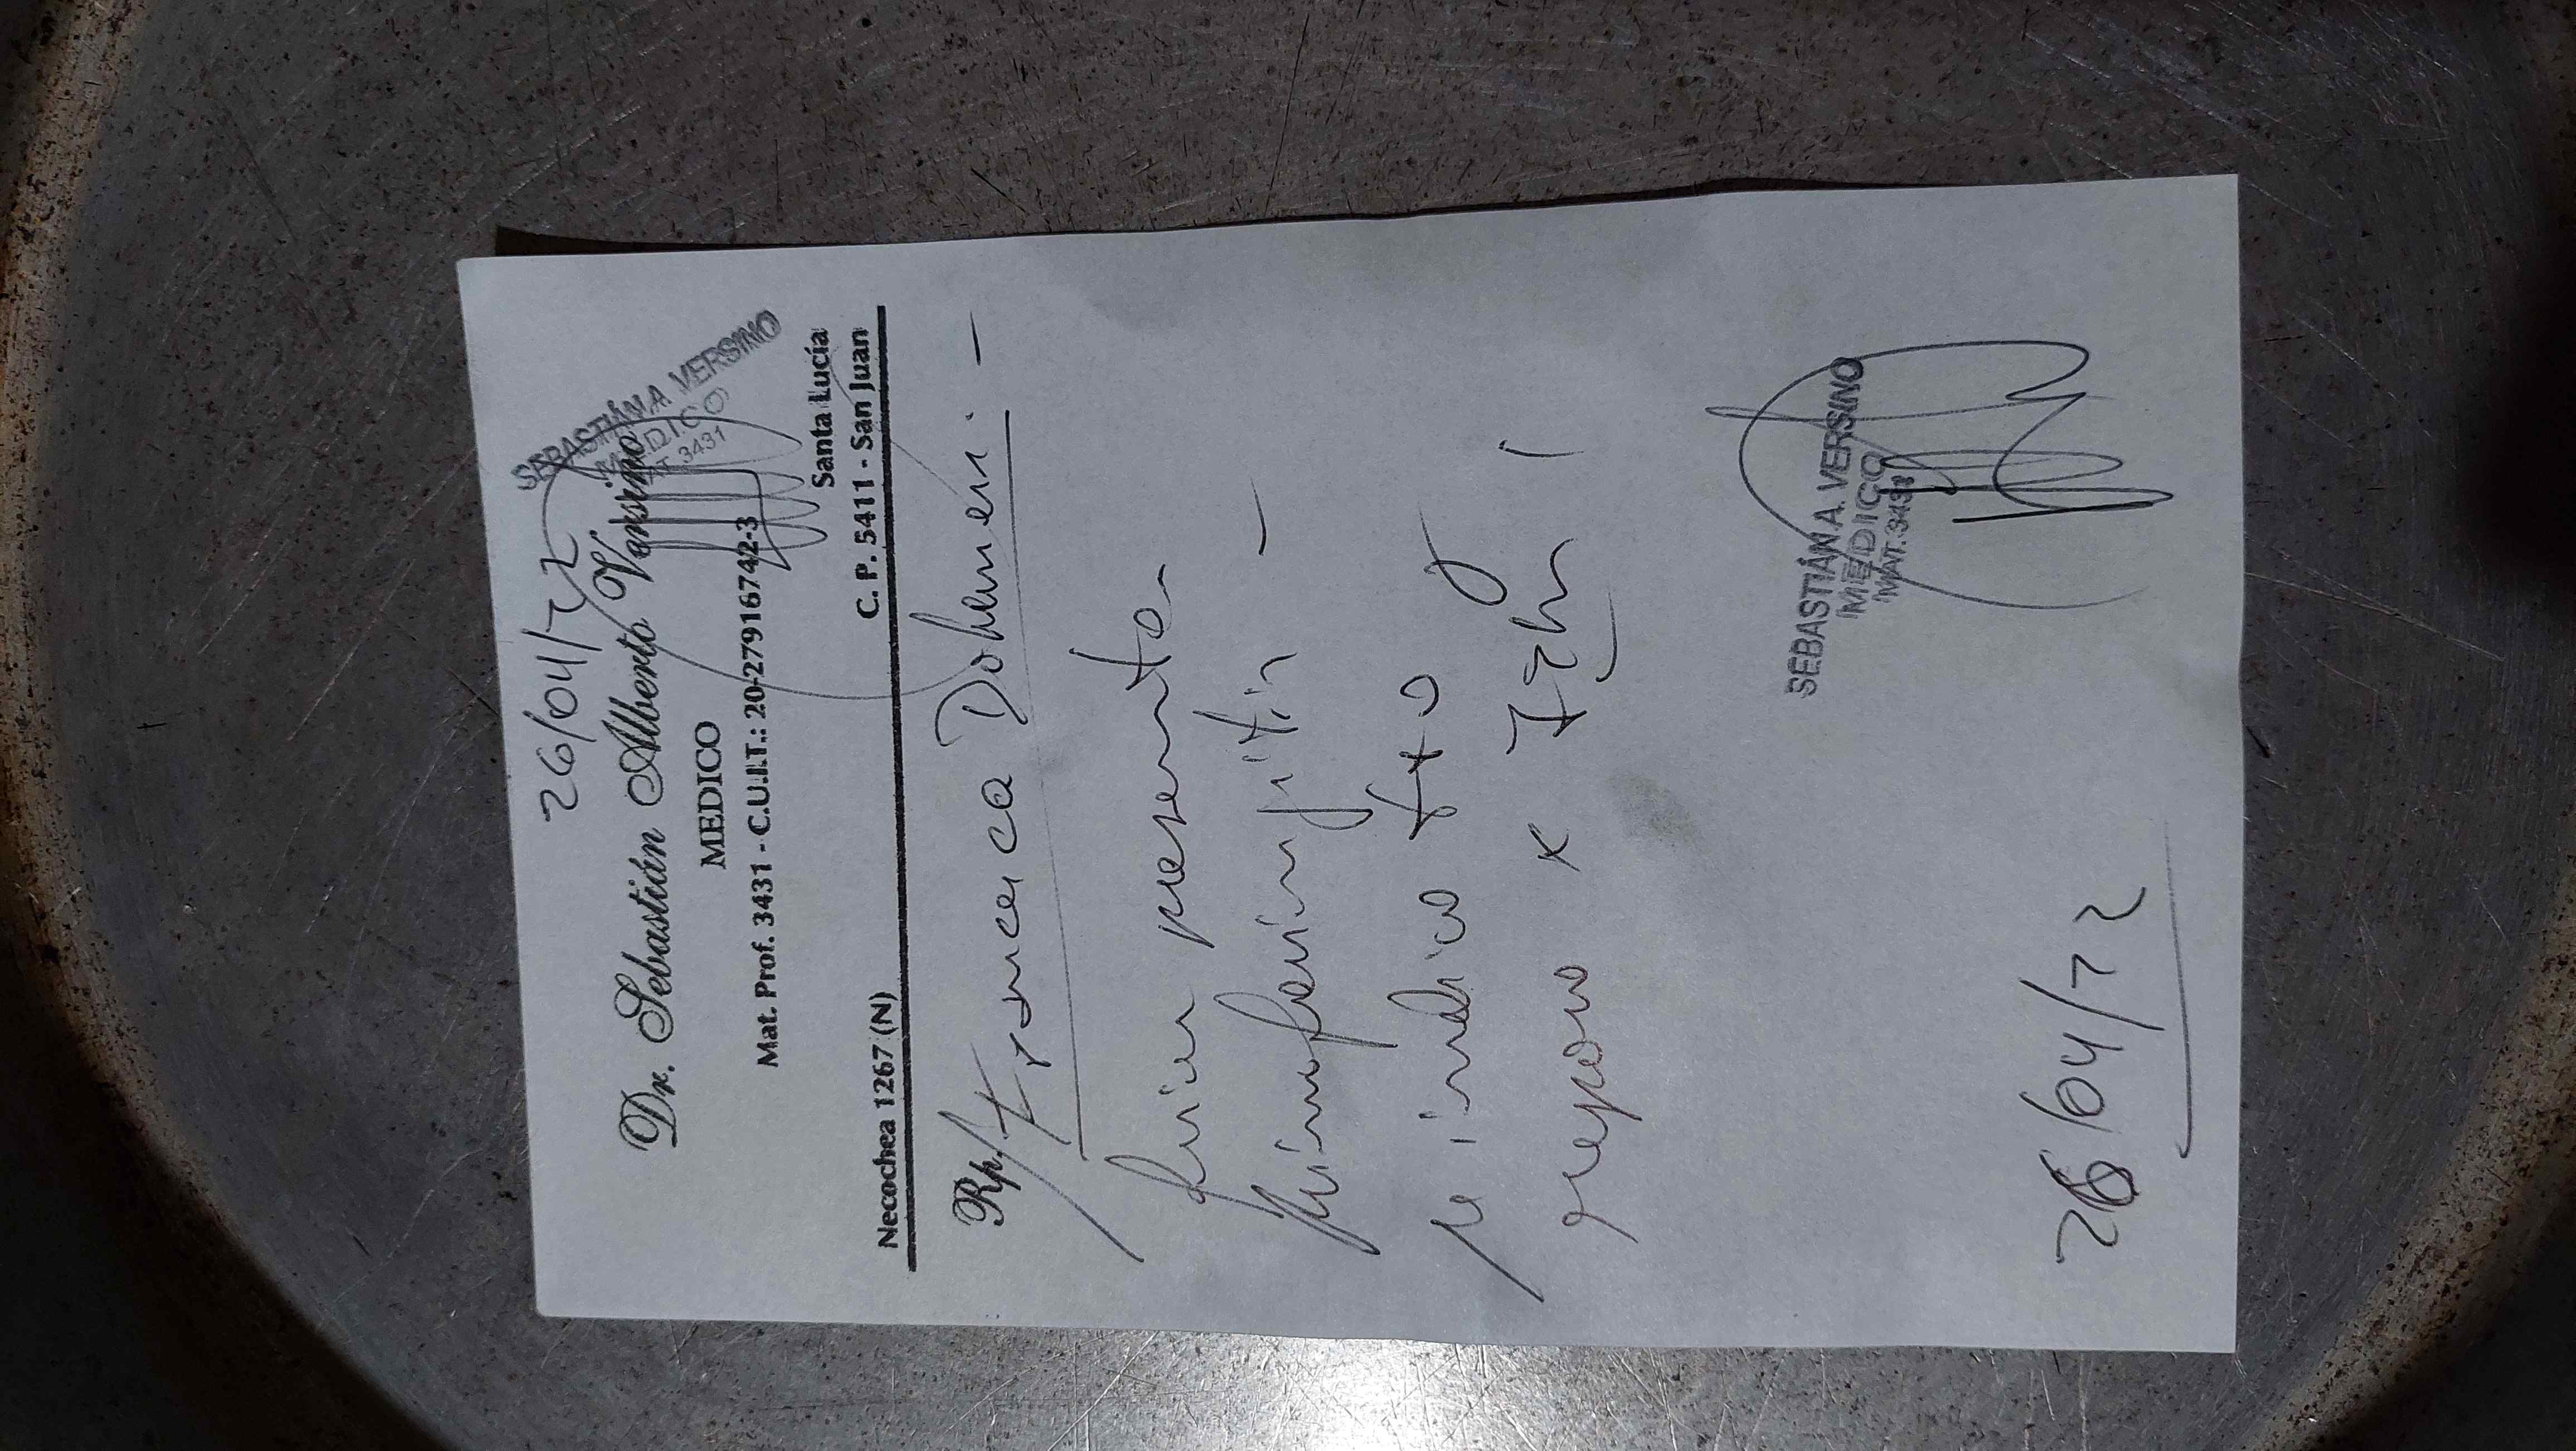 26/04/22
SEBASTIÁN A. VERSINO
MEDICO
MAT. 3431
Dr. Sebastián Alberto Versino
MEDICO
Mat. Prof. 3431 - C.U.I.T.: 20-27916742-3
Santa Lucía
Necochea 1267 (N) C. P. 5411 - San Juan
Rp./ Francisca
quien presenta
rinofaringitis -
se indica tto y
reposo x 72hs
SEBASTIÁN A. VERSINO
MEDICO
MAT. 3431
26/04/22